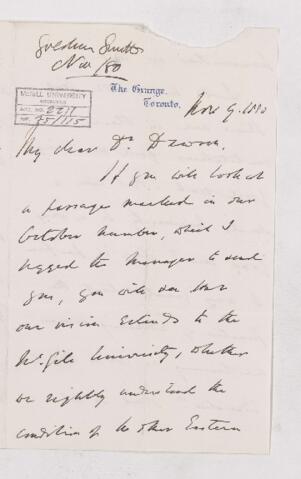 Goldwin Smith
Nov /80
McGILL UNIVERSITY
ARCHIVES
ACC. NO. 2211
REF.
The Grange.
Toronto.
Nov 9. 1880
My dear Dr Dawson.
If you will look at
a passage marked in our
October number, which I
begged the Manager to send
you, you will see how
our vision extends to the
McGill University, whether
we rightly understand the
condition of the other Eastern